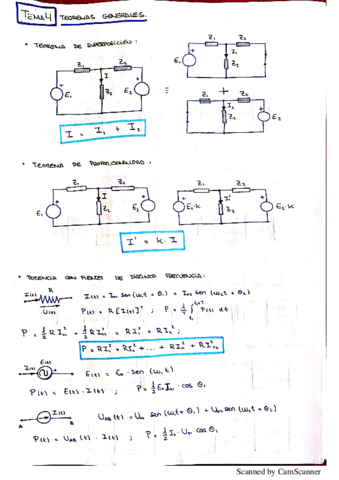 TEMA 4 TEOREMAS GENERALES.
• TEOREMA DE SUPERPOSICIÓN:
Z1 Z2
I
E1 Z2 E2
=
Z1
I1
E1 Z2
+
Z1 Z2
I2
Z2 E2
I = I1 + I2
• TEOREMA DE PROPORCIONALIDAD:
Z1 Z2
I
E1 Z2 E2
Z1 Z2
I'
E1·K Z2 E2·K
I' = K · I
• POTENCIA CON FUENTES DE DISTINTA FRECUENCIA:
I(t) R
U(t)
I(t) = Im sen (w1t + θ1) + Im2 sen (w2t + θ2)
P(t) = R [I(t)]² ; P = 1/T ∫ P(t) dt
P = 1/2 R Im1² + 1/2 R Im2² = R I1² + R I2² ;
P = R I1² + R I2² + ... + R In²
I(t) E(t)
E(t) = E0 · sen (w1t)
P(t) = E(t) · I(t) ; P = 1/2 E0 Im · cos θ1
I(t)
A B
UAB(t) = Um sen (w1t + θ1) + Um sen (w2t + θ2)
P(t) = UAB(t) · I(t) ; P = 1/2 I0 · Um cos θ1
Scanned by CamScanner